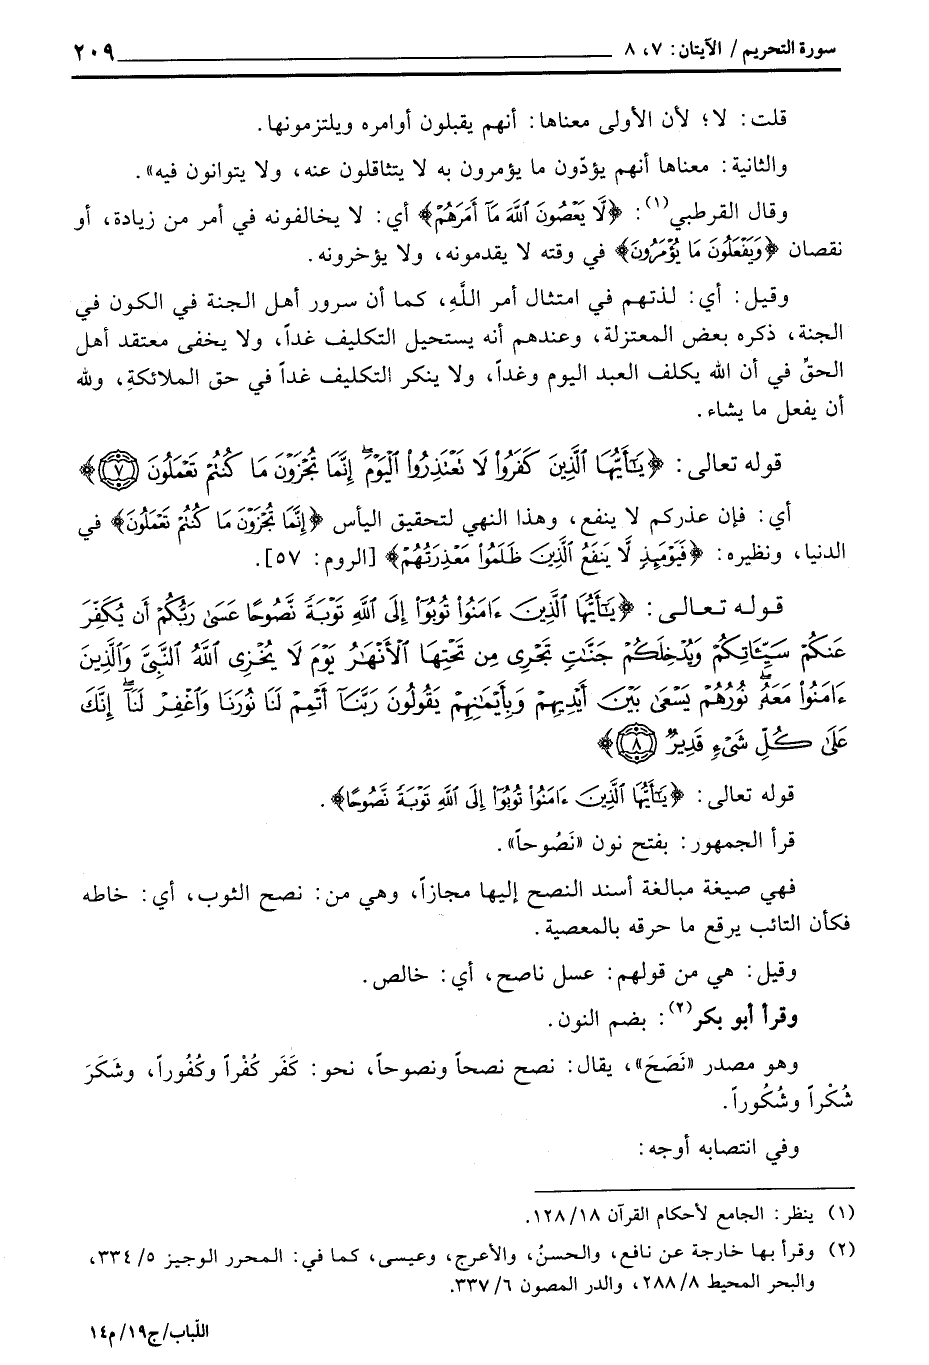 سورة التحريم / الآيتان: ٧، ٨ ٢٠٩
قلت: لا؛ لأن الأولى معناها: أنهم يقبلون أوامره ويلتزمونها.
والثانية: معناها أنهم يؤدّون ما يؤمرون به لا يتثاقلون عنه، ولا يتوانون فيه».
وقال القرطبي(١): ﴿لَّا يَعْصُونَ ٱللَّهَ مَآ أَمَرَهُمْ﴾ أي: لا يخالفونه في أمر من زيادة، أو
نقصان ﴿وَيَفْعَلُونَ مَا يُؤْمَرُونَ﴾ في وقته لا يقدمونه، ولا يؤخرونه.
وقيل: أي: لذتهم في امتثال أمر اللَّهِ، كما أن سرور أهل الجنة في الكون في
الجنة، ذكره بعض المعتزلة، وعندهم أنه يستحيل التكليف غداً، ولا يخفى معتقد أهل
الحقِّ في أن الله يكلف العبد اليوم وغداً، ولا ينكر التكليف غداً في حق الملائكةِ، ولله
أن يفعل ما يشاء.
قوله تعالى: ﴿يَـٰٓأَيُّهَا ٱلَّذِينَ كَفَرُوا۟ لَا تَعْتَذِرُوا۟ ٱلْيَوْمَ ۖ إِنَّمَا تُجْزَوْنَ مَا كُنتُمْ تَعْمَلُونَ ٧﴾
أي: فإن عذركم لا ينفع، وهذا النهي لتحقيق اليأس ﴿إِنَّمَا تُجْزَوْنَ مَا كُنتُمْ تَعْمَلُونَ﴾ في
الدنيا، ونظيره: ﴿فَيَوْمَئِذٍ لَّا يَنفَعُ ٱلَّذِينَ ظَلَمُوا۟ مَعْذِرَتُهُمْ﴾ [الروم: ٥٧].
قوله تعالى: ﴿يَـٰٓأَيُّهَا ٱلَّذِينَ ءَامَنُوا۟ تُوبُوٓا۟ إِلَى ٱللَّهِ تَوْبَةً نَّصُوحًا عَسَىٰ رَبُّكُمْ أَن يُكَفِّرَ
عَنكُمْ سَيِّـَٔاتِكُمْ وَيُدْخِلَكُمْ جَنَّـٰتٍ تَجْرِى مِن تَحْتِهَا ٱلْأَنْهَـٰرُ يَوْمَ لَا يُخْزِى ٱللَّهُ ٱلنَّبِىَّ وَٱلَّذِينَ
ءَامَنُوا۟ مَعَهُۥ ۖ نُورُهُمْ يَسْعَىٰ بَيْنَ أَيْدِيهِمْ وَبِأَيْمَـٰنِهِمْ يَقُولُونَ رَبَّنَآ أَتْمِمْ لَنَا نُورَنَا وَٱغْفِرْ لَنَآ ۖ إِنَّكَ
عَلَىٰ كُلِّ شَىْءٍ قَدِيرٌ ٨﴾
قوله تعالى: ﴿يَـٰٓأَيُّهَا ٱلَّذِينَ ءَامَنُوا۟ تُوبُوٓا۟ إِلَى ٱللَّهِ تَوْبَةً نَّصُوحًا﴾.
قرأ الجمهور: بفتح نون «نَصُوحاً».
فهي صيغة مبالغة أسند النصح إليها مجازاً، وهي من: نصح الثوب، أي: خاطه
فكأن التائب يرقع ما حرقه بالمعصية.
وقيل: هي من قولهم: عسل ناصح، أي: خالص.
وقرأ أبو بكر(٢): بضم النون.
وهو مصدر «نَصَحَ»، يقال: نصح نصحاً ونصوحاً، نحو: كَفَر كُفْراً وكُفُوراً، وشَكَرَ
شُكْراً وشُكُوراً.
وفي انتصابه أوجه:
(١) ينظر: الجامع لأحكام القرآن ١٢٨/١٨.
(٢) وقرأ بها خارجة عن نافع، والحسنُ، والأعرج، وعيسى، كما في: المحرر الوجيز ٣٣٤/٥،
والبحر المحيط ٢٨٨/٨، والدر المصون ٣٣٧/٦.
اللّباب/ج١٩/م١٤